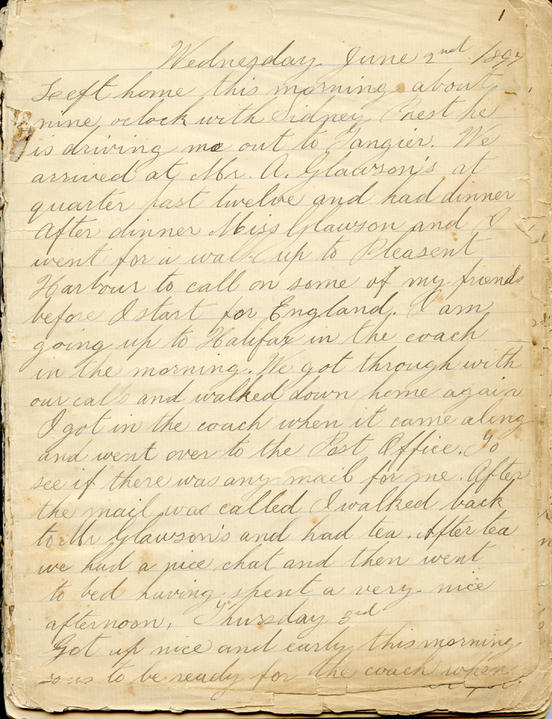 1
Wednesday June 2nd 1897
Left home this morning about
nine, oclock with Sidney Prest he
is driving me out to Tangier. We
arrived at Mr. A. Glawson's at
quarter past twelve and had dinner
After dinner Miss Glawson and I
went for a walk up to Pleasent
Harbour to call on some of my friends
before I start for England. I am
going up to Halifax in the coach
in the morning. We got through with
our calls and walked down home again
I got in the coach when it came along
and went over to the Post Office. To
see if there was any mail for me. After
the mail was called I walked back
to Mr Glawson's and had tea. After tea
we had a nice chat and then went
to bed having spent a very nice
afternoon. Thursday 3rd
Got up nice and early this morning
so as to be ready for the coach when